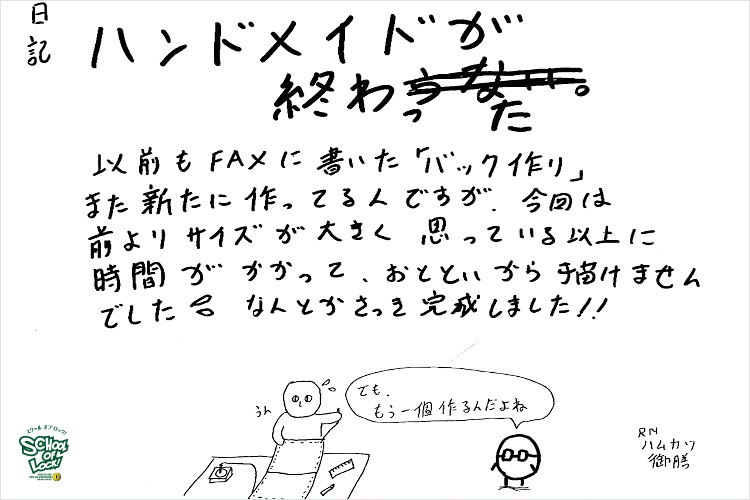 日記
ハンドメイドが
終わらない。
った
以前もFAXに書いた「バック作り」
また新たに作ってるんですが、今回は
前よりサイズが大きく 思っている以上に
時間がかかって、おとといから描けません
でした なんとかさっき完成しました!!
でも、
もう一個作るんだよね
うん
RN
ハムカツ
御膳
スクール オブ ロック!
SCHOOL
OF
LOCK!